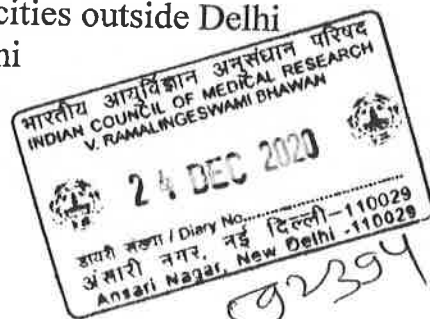 cities outside Delhi
hi
भारतीय आयुर्विज्ञान अनुसंधान परिषद
INDIAN COUNCIL OF MEDICAL RESEARCH
V. RAMALINGESWAMI BHAWAN
24 DEC 2020
डायरी संख्या / Diary No.
अंसारी नगर, नई दिल्ली-110029
Ansari Nagar, New Delhi -110029